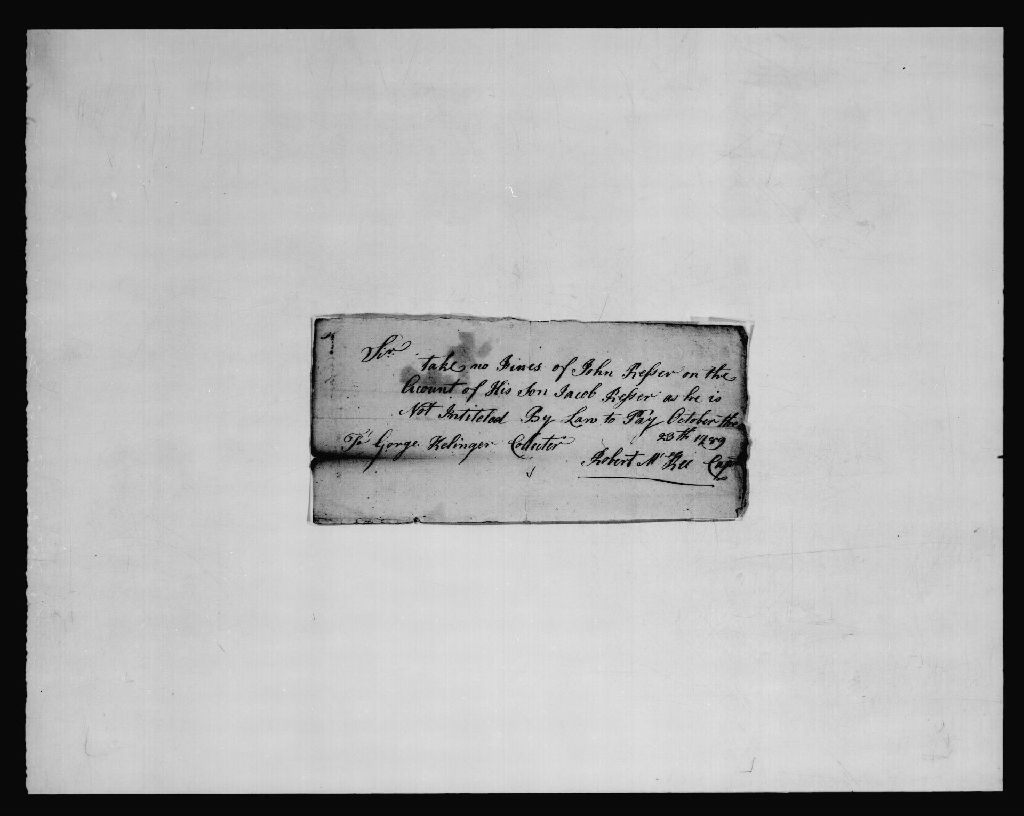 Sir
take no Fines of John Resser on the
Acount of His Son Jacob Resser as he is
Not Intiteled By Law to Pay October the
23th 1789
To Gorge Kelinger Collecter
Robert Mc Kee Cap